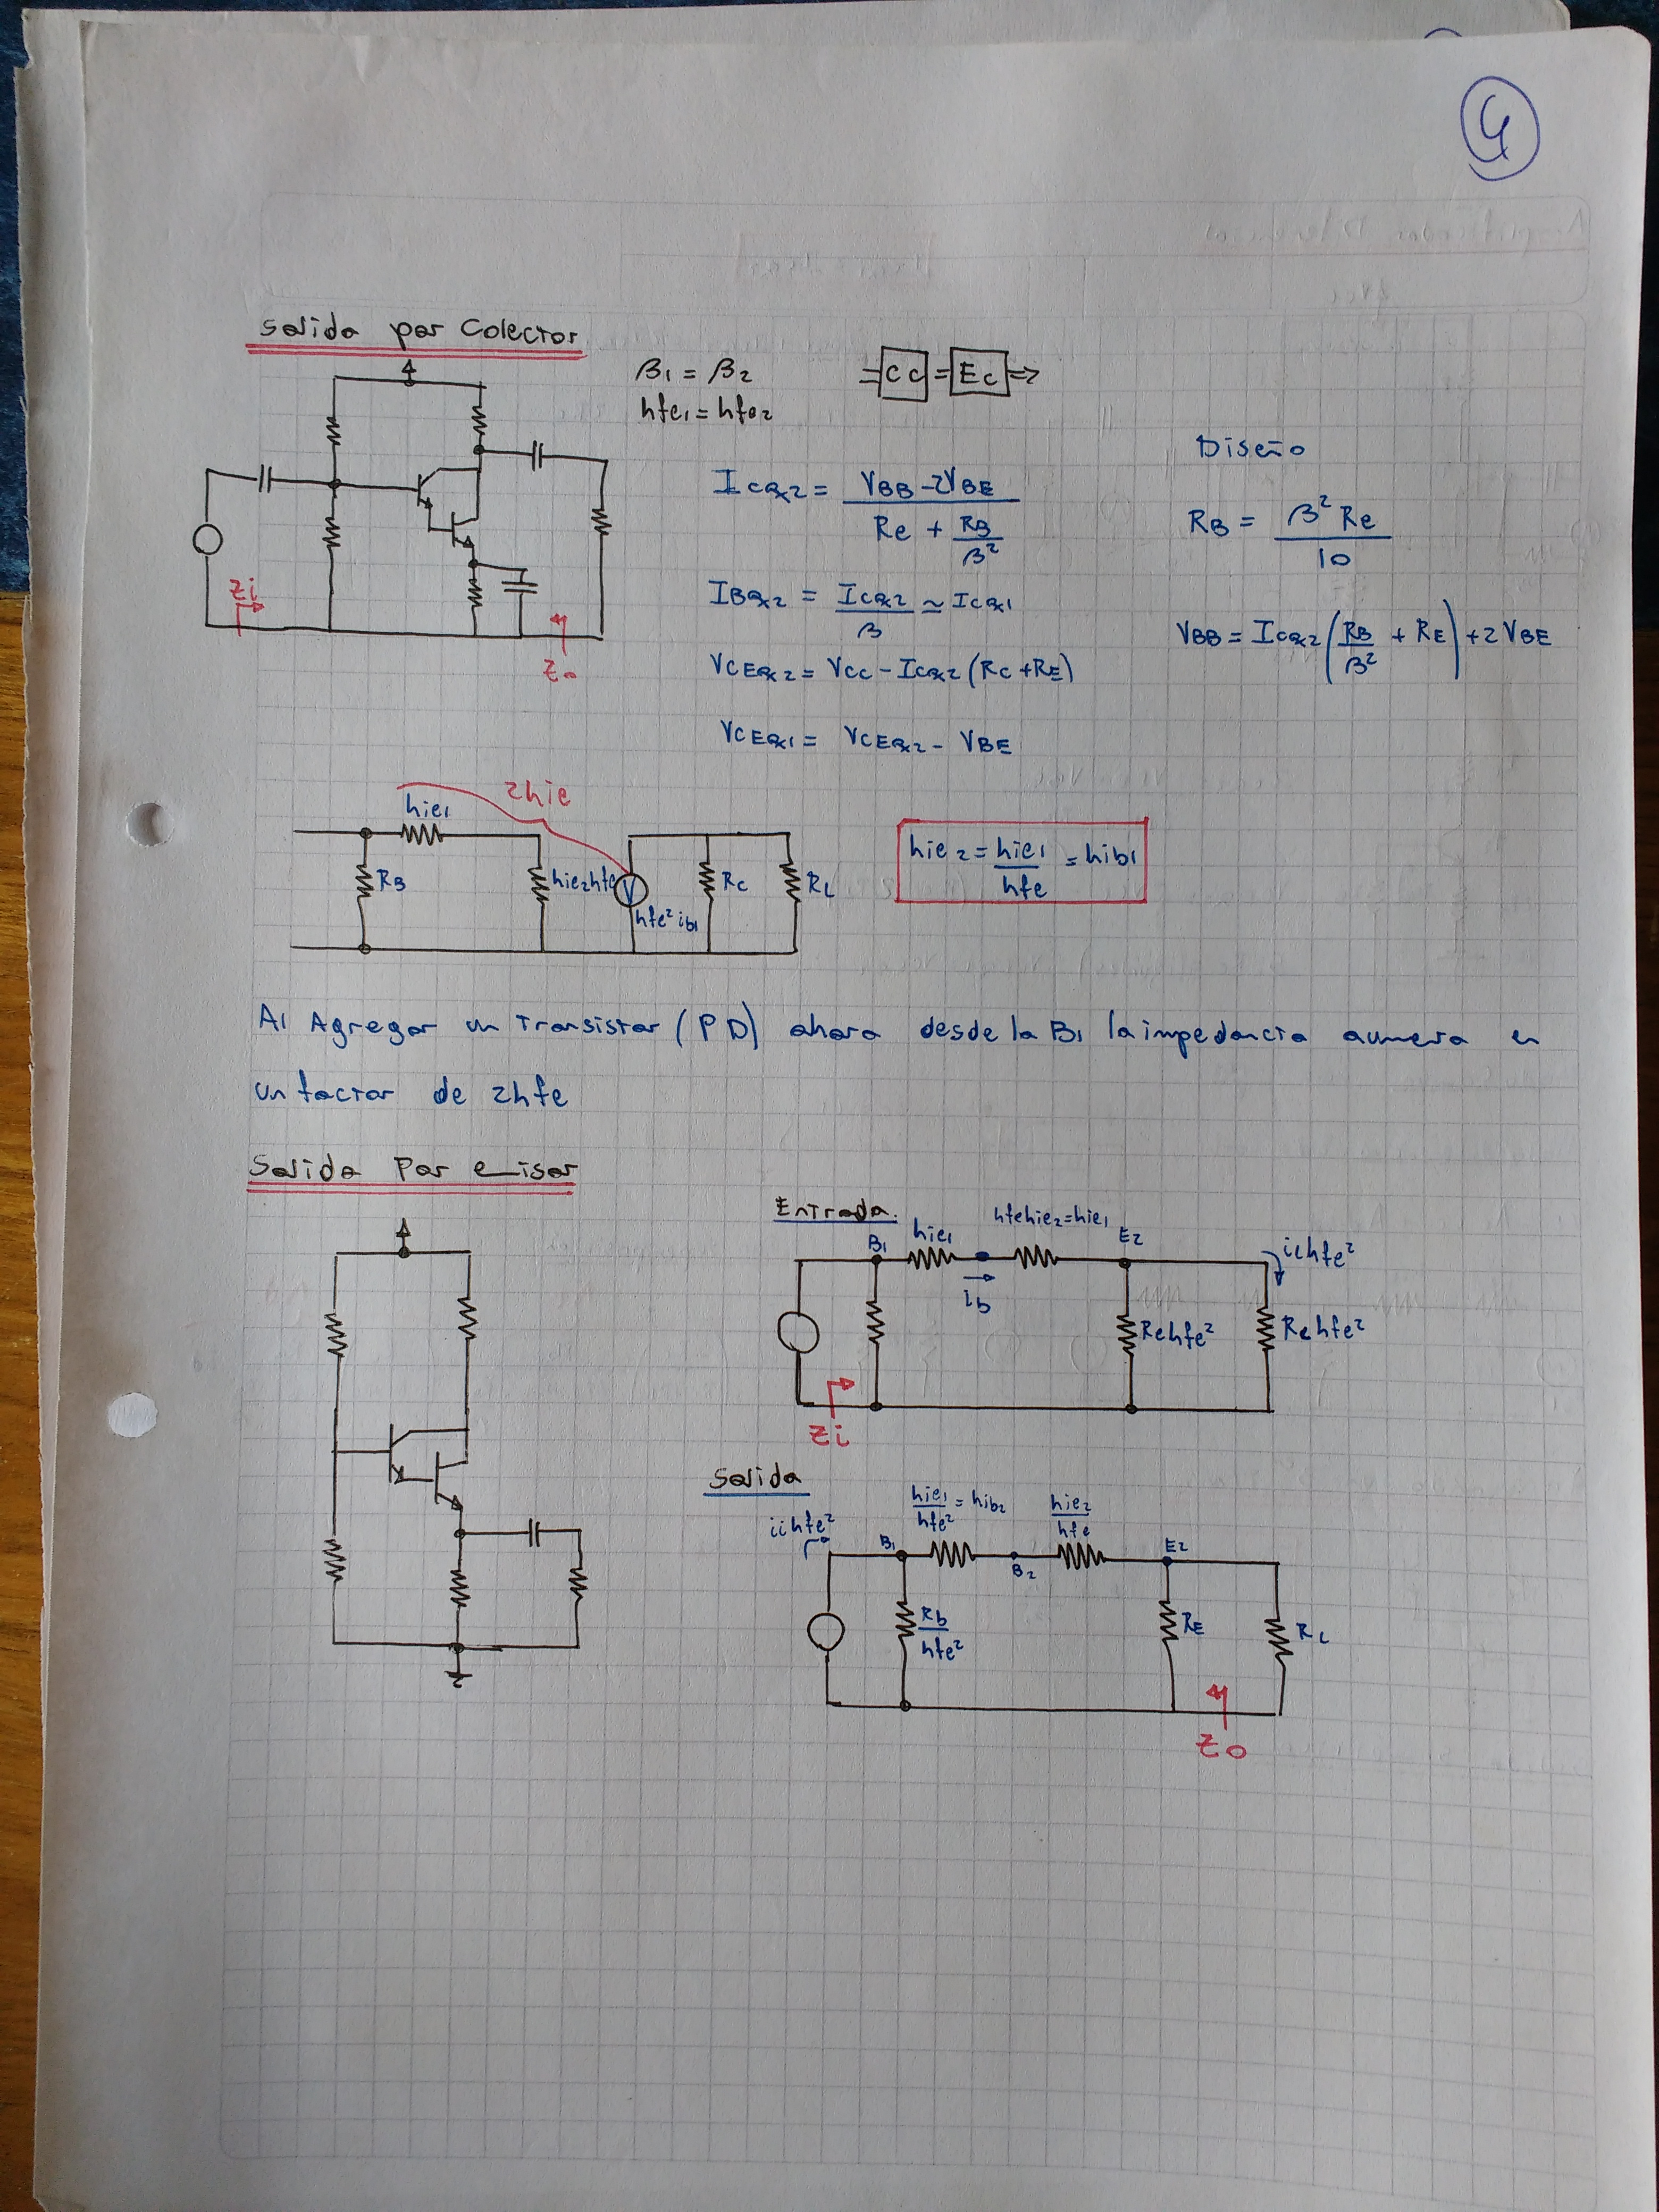 4
Salida por Colector
β1 = β2
hfe1 = hfe2
CC = EC
ICQ2 = (VBB - 2VBE) / (Re + RB/β²)
IBQ2 = ICQ2/β ≃ ICQ1
VCEQ2 = VCC - ICQ2 (RC + RE)
VCEQ1 = VCEQ2 - VBE
Diseño
RB = β² Re / 10
VBB = ICQ2 (RB/β² + RE) + 2 VBE
Zi
Zo
2hie
hie1
RB
hie2hfe
hfe² ib1
RC
RL
hie2 = hie1/hfe = hib1
Al Agregar un Transistor (PD) ahora desde la B1 la impedancia aumena en
un factor de 2hfe
Salida Por emisor
Entrada.
B1
hie1
hfehie2=hie1
E2
ib
iLhfe²
Rehfe²
RLhfe²
Zi
Salida
iihfe²
B1
hie1/hfe² = hib2
B2
hie2/hfe
E2
Rb/hfe²
RE
RL
Zo